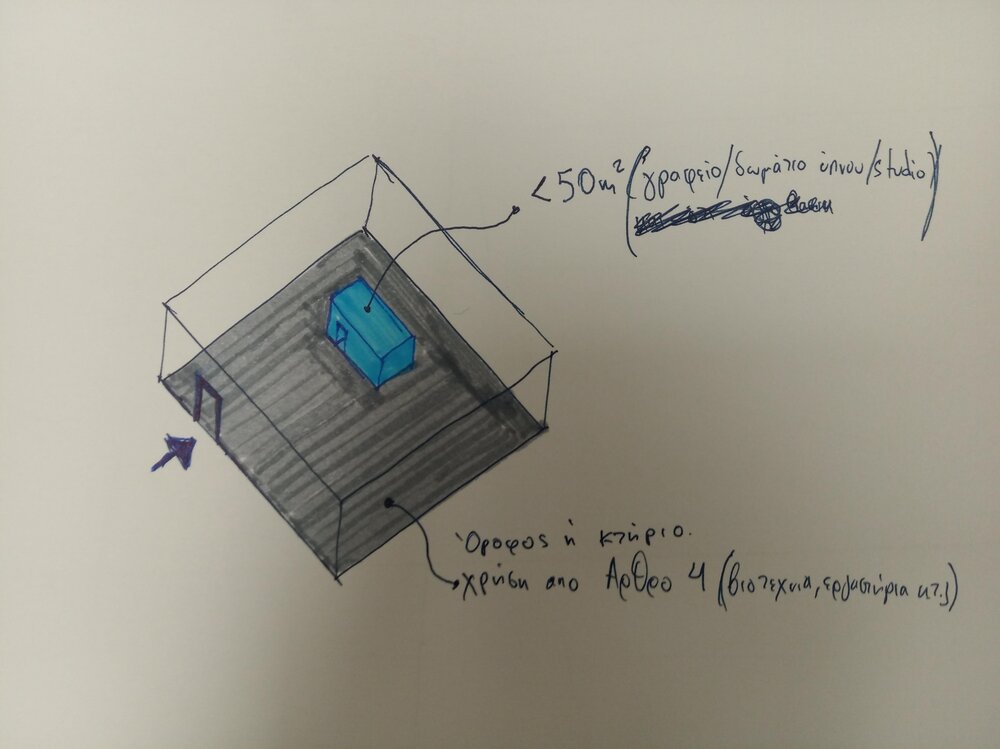 <50m² (γραφείο/δωμάτιο ύπνου/studio)
Όροφος ή κτήριο.
χρήση απο Άρθρο 4 (βιοτεχνία, εργαστήρια κτλ)